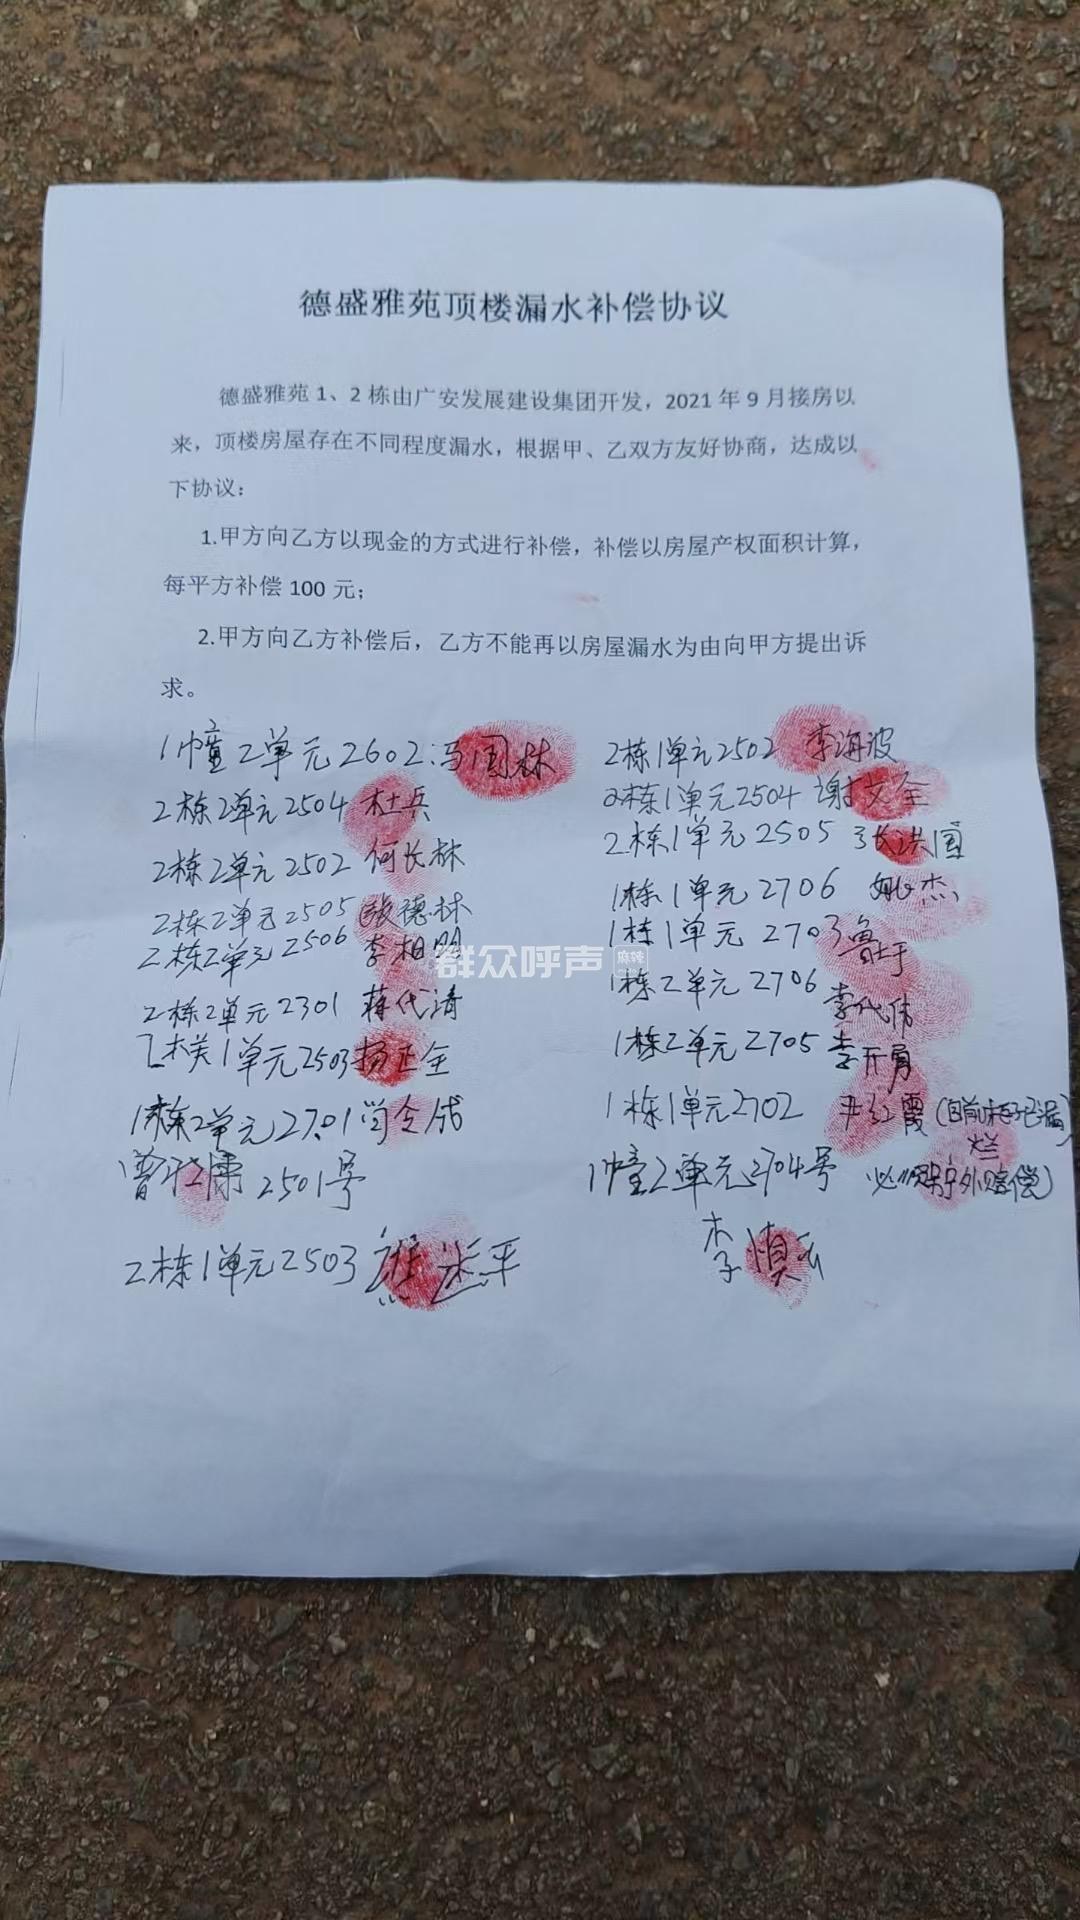 德盛雅苑顶楼漏水补偿协议
德盛雅苑1、2栋由广安发展建设集团开发，2021年9月接房以
来，顶楼房屋存在不同程度漏水，根据甲、乙双方友好协商，达成以
下协议：
1.甲方向乙方以现金的方式进行补偿，补偿以房屋产权面积计算，
每平方补偿100元；
2.甲方向乙方补偿后，乙方不能再以房屋漏水为由向甲方提出诉
求。
1幢2单元2602：马国林
2栋2单元2504 杜兵
2栋2单元2502 何长林
2栋2单元2505 德林
2栋2单元2506 李相明
2栋2单元2301 蒋代清
1单元2503 杨正全
1栋2单元2701
2501号
2栋1单元2503 熊 平
2栋1单元2502 李海波
2栋1单元2504 谢文全
2栋1单元2505 张洪国
1栋1单元2706 姚杰
1栋1单元2703 鲁
1栋2单元2706
李代伟
1栋2单元2705 李开勇
1栋1单元2702 尹红霞（目前 已漏
烂
1幢2单元2704号 必须另外赔偿）
李
群众呼声 麻辣